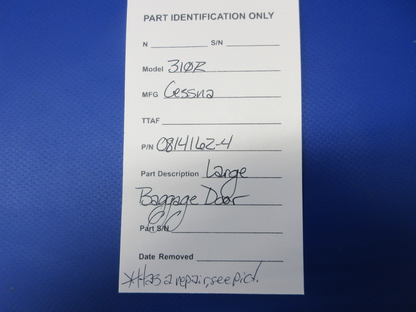 PART IDENTIFICATION ONLY
N ________ S/N ________
Model 310R
MFG Cessna
TTAF ________
P/N 0814162-4
Part Description Large
Baggage Door
Part S/N ________
Date Removed ________
*Has a repair, see pic!